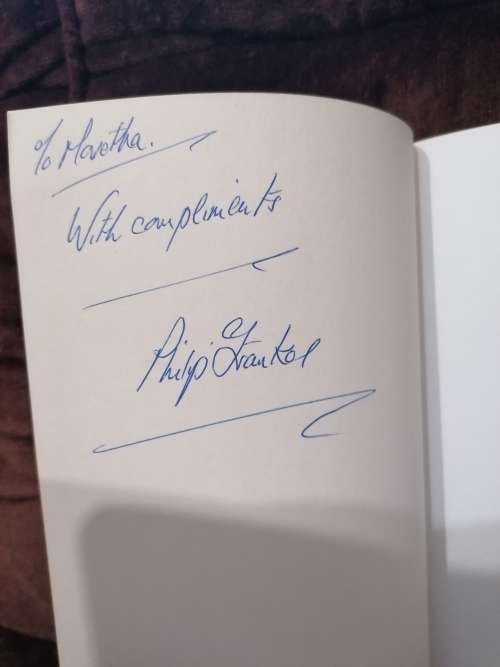 To Movetha.
With compliments
Philip Frankel